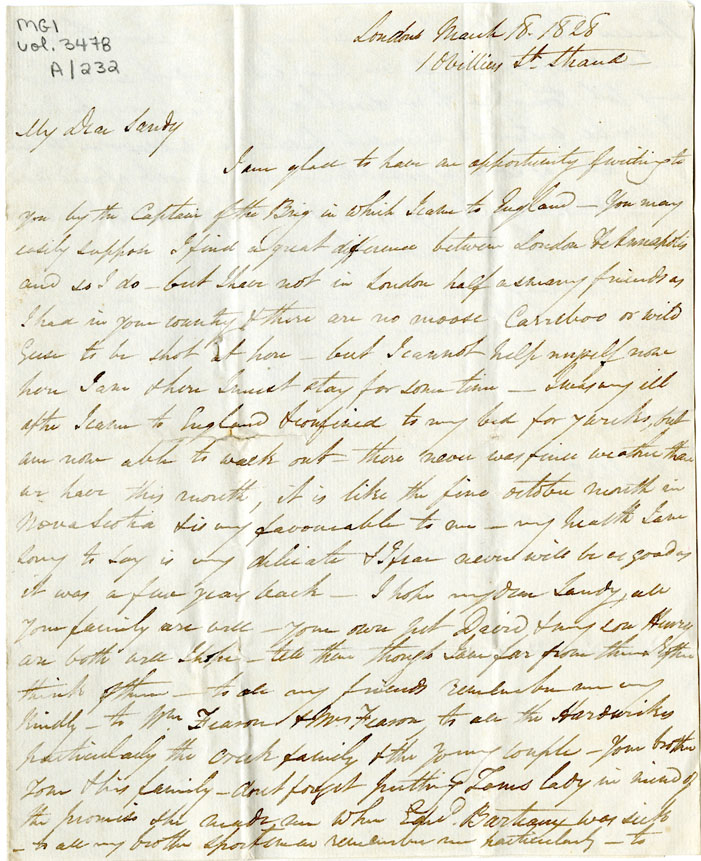 MG1
Vol. 3478
A/232
London March 18. 1828
10 Villiers St. Strand –
My Dear Sandy
I am glad to have an opportunity of writing to
you by the Captain of the Brig in which I came to England – You may
easily suppose I find a great difference between London & Annapolis
and so I do – but I have not in London half as many friends as
I had in your country & there are no moose Carreboo or wild
Geese to be shot at here – but I cannot help myself now
here I am & here I must stay for some time – I was very ill
after I came to England & confined to my bed for 7 weeks, but
am now able to walk out – there never was finer weather than
we have this month, it is like the fine October month in
Nova Scotia & is very favourable to me – my health I am
sorry to say is very delicate & I fear never will be as good as
it was a few years back – I hope my dear Sandy, all
your family are well – your own pet David, & my son Henry
are both well I hope – tell them though I am far from them I often
think of them – to all my friends remember me very
kindly – to Wm. Feason & Mrs Feason, to all the Hardwicks
particularly the creek family & the young couple – Your brother
Tom & his family – dont forget putting Toms lady in mind of
the promise she made me when Edwd. Barteaux was sick
– to all my brother sportsmen remember me particularly – to